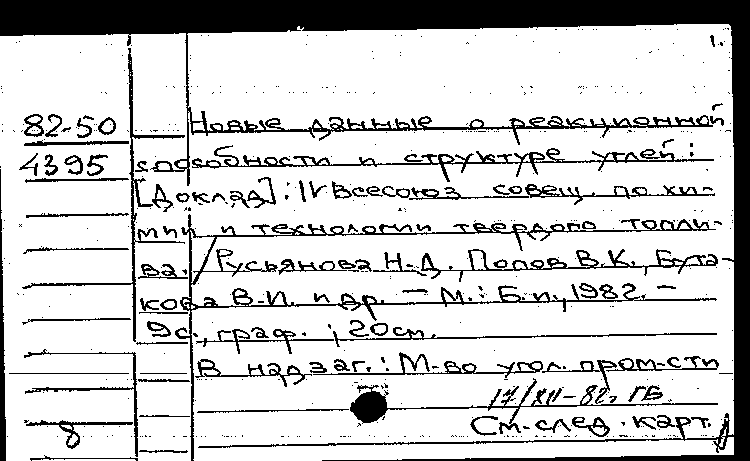 1.
82-50 Новые данные о реакционной
4395 способности и структуре углей:
[Доклад]: IV Всесоюз. совещ. по хи-
мии и технологии твердого топли-
ва. / Русьянова Н.Д., Попов В.К., Бута-
кова В.И. и др. — М.: Б.и., 1982. —
9с., граф.; 20см.
В надзаг.: М-во угол. пром-сти
17/XII-82. ГБ
8 См. след. карт.